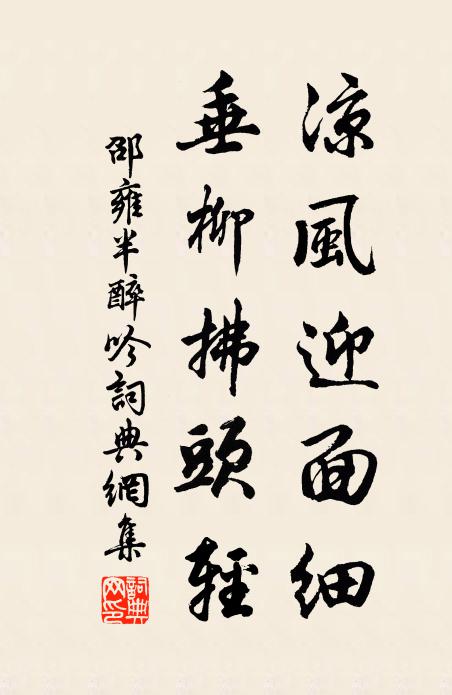 涼風迎面細
垂柳拂頭輕
邵雍半醉吟詞典網集
詞典网印